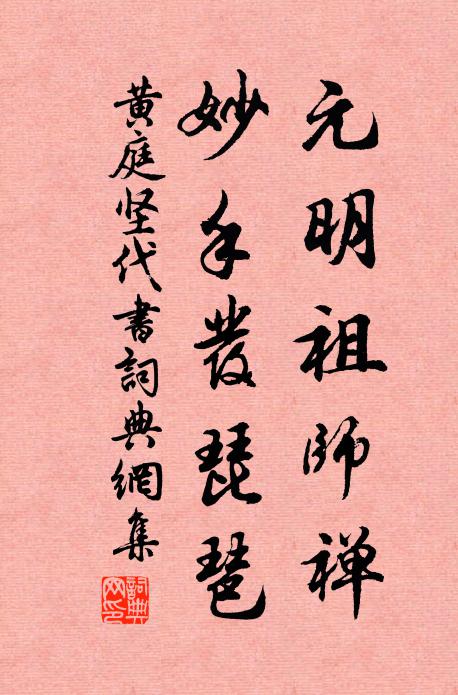 元明祖师禅
妙手發琵琶
黄庭坚代書詞典網集
詞典網印